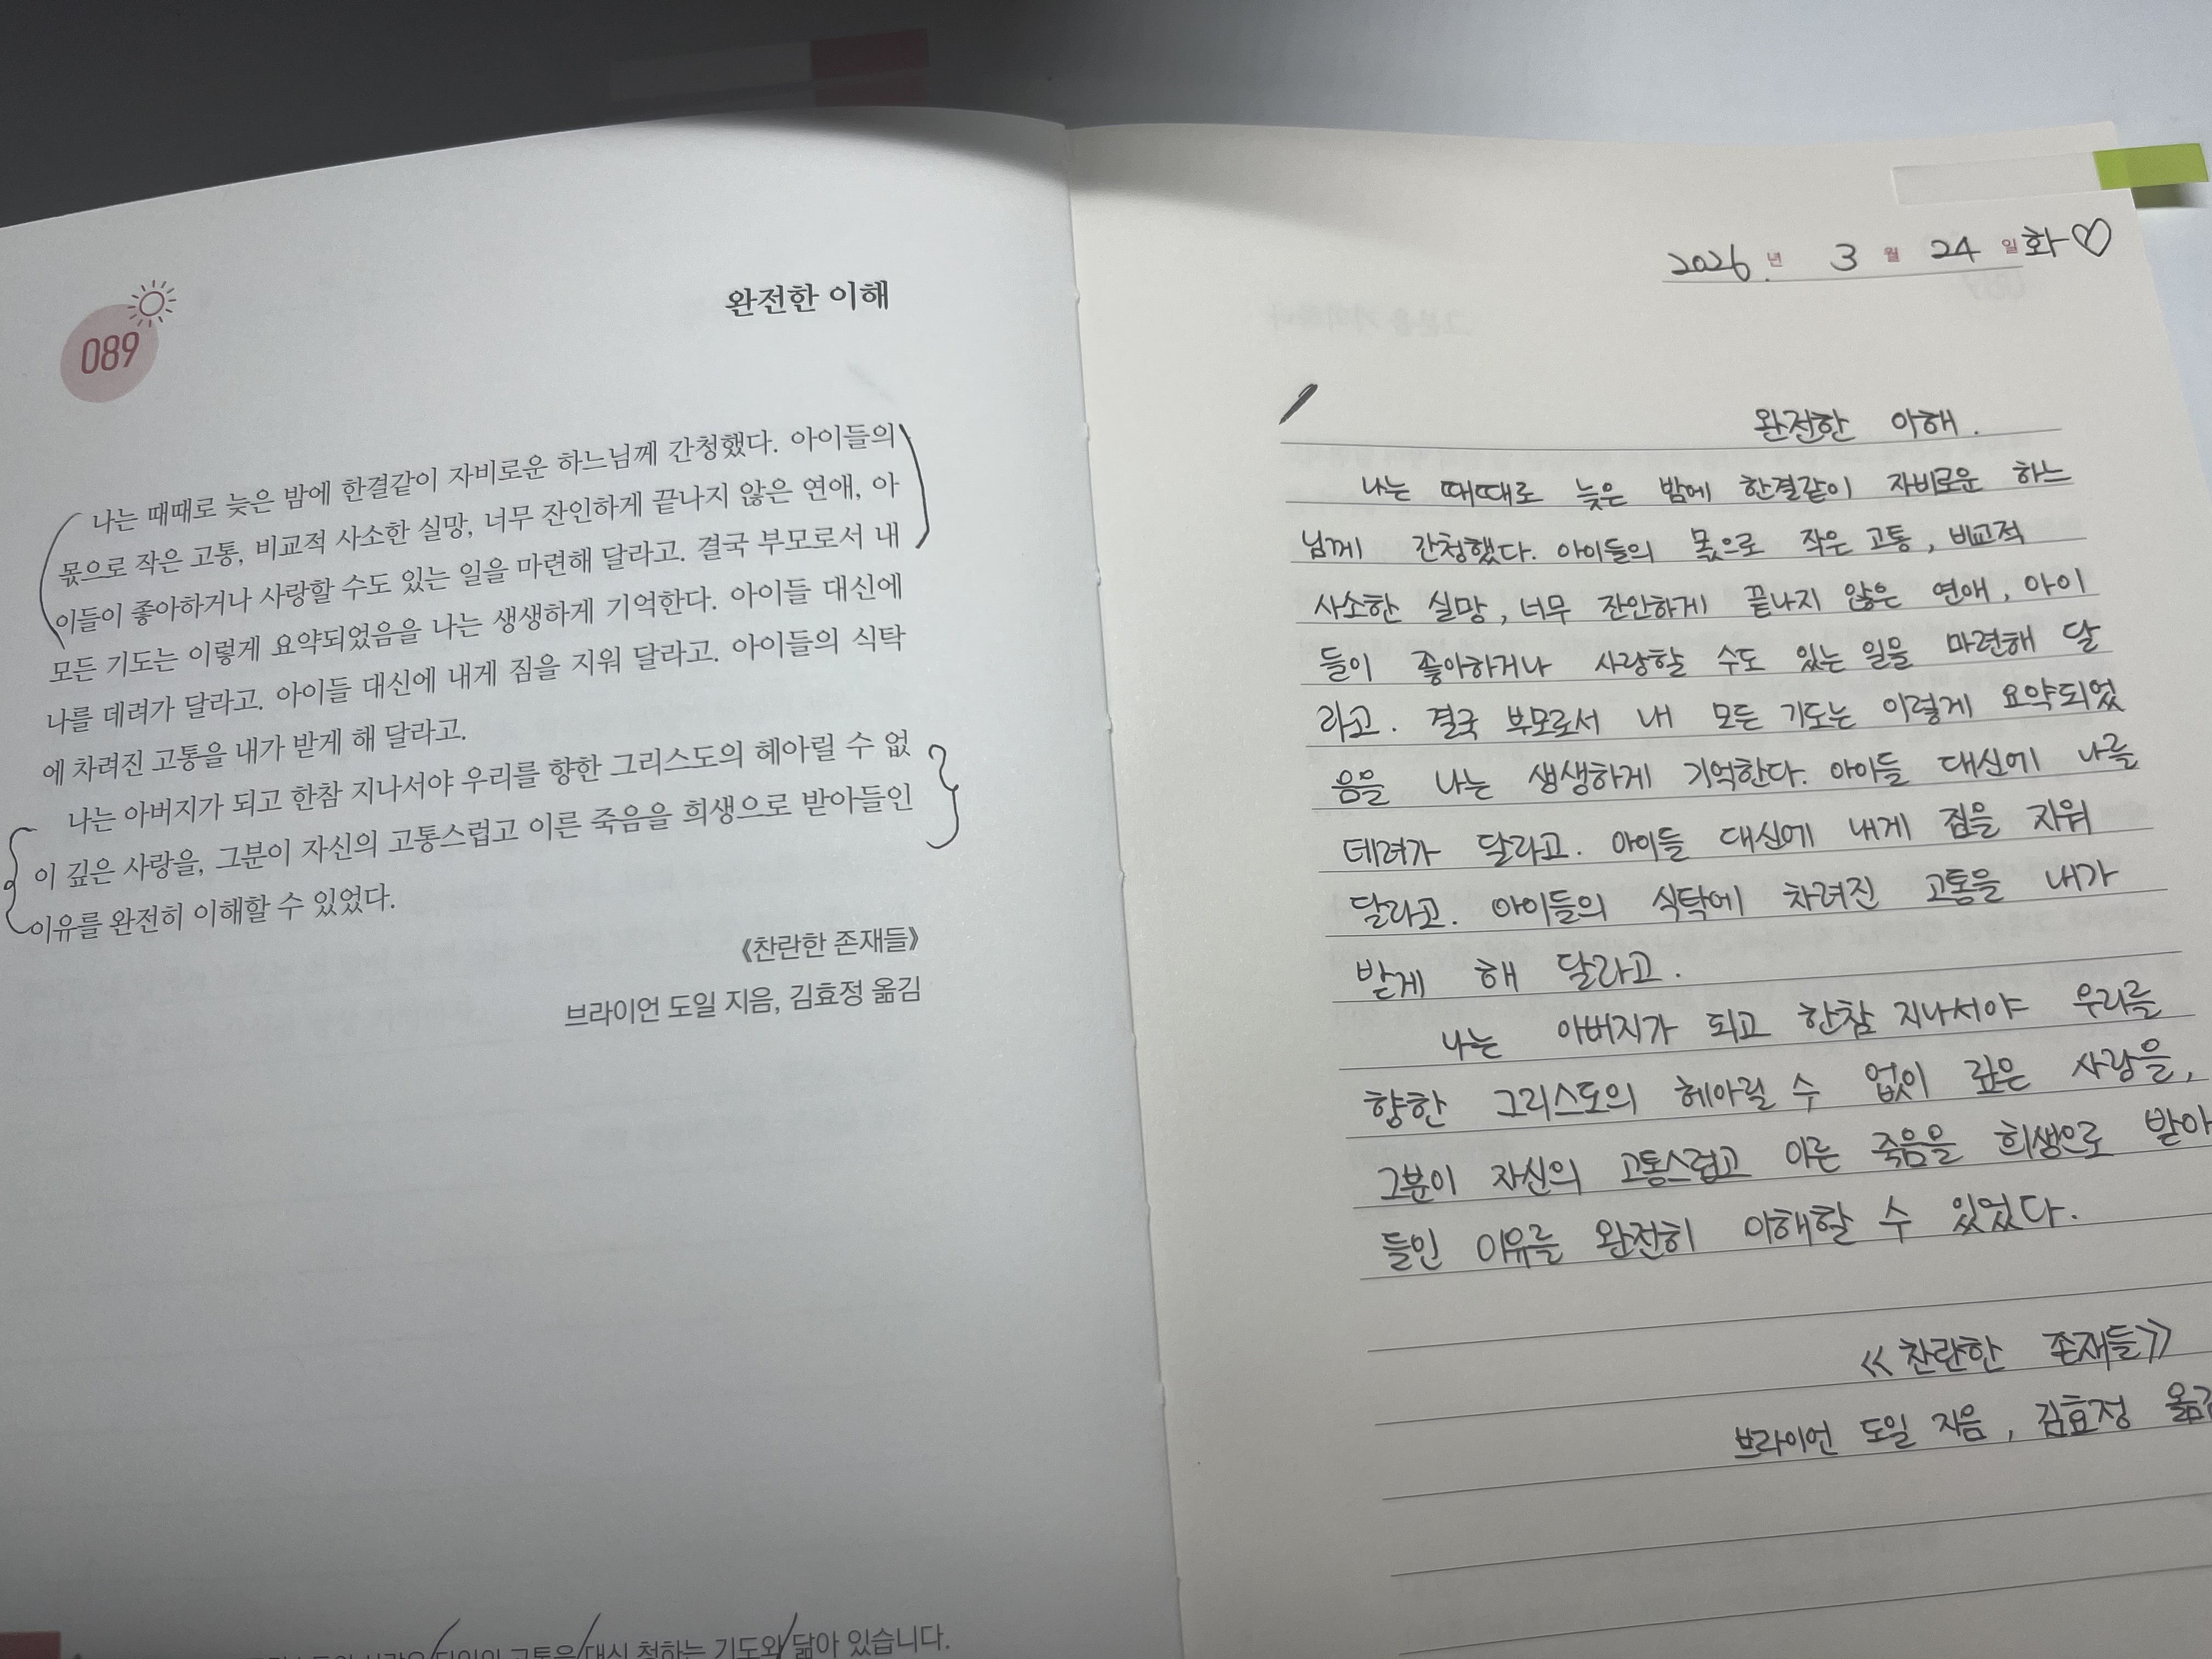 089
완전한 이해
나는 때때로 늦은 밤에 한결같이 자비로운 하느님께 간청했다. 아이들의
몫으로 작은 고통, 비교적 사소한 실망, 너무 잔인하게 끝나지 않은 연애, 아
이들이 좋아하거나 사랑할 수도 있는 일을 마련해 달라고. 결국 부모로서 내
모든 기도는 이렇게 요약되었음을 나는 생생하게 기억한다. 아이들 대신에
나를 데려가 달라고. 아이들 대신에 내게 짐을 지워 달라고. 아이들의 식탁
에 차려진 고통을 내가 받게 해 달라고.
나는 아버지가 되고 한참 지나서야 우리를 향한 그리스도의 헤아릴 수 없
이 깊은 사랑을, 그분이 자신의 고통스럽고 이른 죽음을 희생으로 받아들인
이유를 완전히 이해할 수 있었다.
《찬란한 존재들》
브라이언 도일 지음, 김효정 옮김
고통을 대신 청하는 기도와 닮아 있습니다.
2026년 3월 24일 화♡
완전한 이해.
나는 때때로 늦은 밤에 한결같이 자비로운 하느
님께 간청했다. 아이들의 몫으로 작은 고통, 비교적
사소한 실망, 너무 잔인하게 끝나지 않은 연애, 아이
들이 좋아하거나 사랑할 수도 있는 일을 마련해 달
라고. 결국 부모로서 내 모든 기도는 이렇게 요약되었
음을 나는 생생하게 기억한다. 아이들 대신에 나를
데려가 달라고. 아이들 대신에 내게 짐을 지워
달라고. 아이들의 식탁에 차려진 고통을 내가
받게 해 달라고.
나는 아버지가 되고 한참 지나서야 우리를
향한 그리스도의 헤아릴 수 없이 깊은 사랑을,
그분이 자신의 고통스럽고 이른 죽음을 희생으로 받아
들인 이유를 완전히 이해할 수 있었다.
《찬란한 존재들》
브라이언 도일 지음, 김효정 옮김